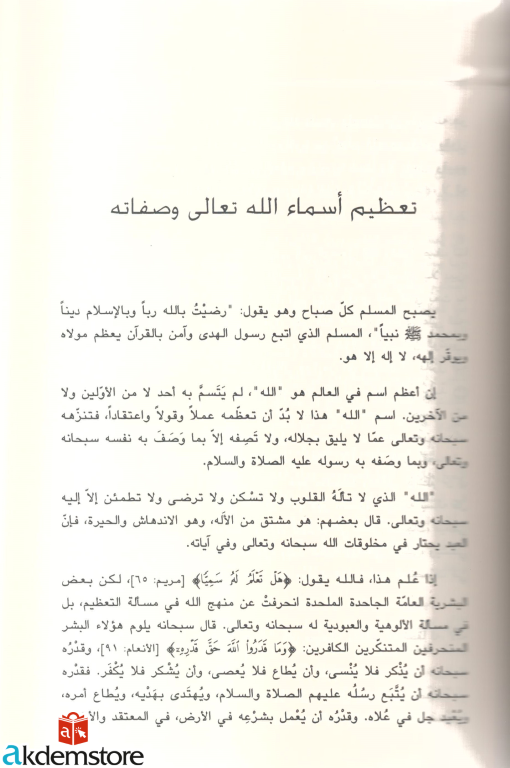 تعظيم أسماء الله تعالى وصفاته
يصبح المسلم كلّ صباح وهو يقول: "رضيْتُ بالله رباً وبالإسلام ديناً
وبمحمد ﷺ نبياً"، المسلم الذي اتبع رسول الهدى وآمن بالقرآن يعظم مولاه
ويوقّر إلهه، لا إله إلا هو.
إن أعظم اسم في العالم هو "الله"، لم يَتَسمَّ به أحد لا من الأوّلين ولا
من الآخرين. اسم "الله" هذا لا بُدّ أن تعظّمه عملاً وقولاً واعتقاداً، فتنزّهه
سبحانه وتعالى عمّا لا يليق بجلاله، ولا تَصِفه إلاّ بما وَصَفَ به نفسه سبحانه
وتعالى، وبما وصفَه به رسوله عليه الصلاة والسلام.
"الله" الذي لا تألَهُ القلوب ولا تسْكن ولا ترضى ولا تطمئن إلاّ إليه
سبحانه وتعالى. قال بعضهم: هو مشتق من الأَلَه، وهو الاندهاش والحيرة، فإنّ
العبد يحتار في مخلوقات الله سبحانه وتعالى وفي آياته.
إذا عُلم هذا، فالله يقول: ﴿هَلْ تَعْلَمُ لَهُ سَمِيًّا﴾ [مريم: ٦٥]، لكن بعض
البشرية العامّة الجاحدة الملحدة انحرفتْ عن منهج الله في مسألة التعظيم، بل
في مسألة الألوهية والعبودية له سبحانه وتعالى. قال سبحانه يلوم هؤلاء البشر
المنحرفين المتنكّرين الكافرين: ﴿وَمَا قَدَرُوا اللَّهَ حَقَّ قَدْرِهِ﴾ [الأنعام: ٩١]، وقدْرُه
سبحانه أن يُذْكر فلا يُنْسى، وأن يُطاع فلا يُعصى، وأن يُشْكر فلا يُكْفَر. فقدْره
سبحانه أن يُتَّبع رسُلُه عليهم الصلاة والسلام، ويُهتدى بهَدْيه، ويُطاع أمره،
جل في عُلاه. وقدْرُه أن يُعْمل بشرْعِه في الأرض، في المعتقد
akdemstore